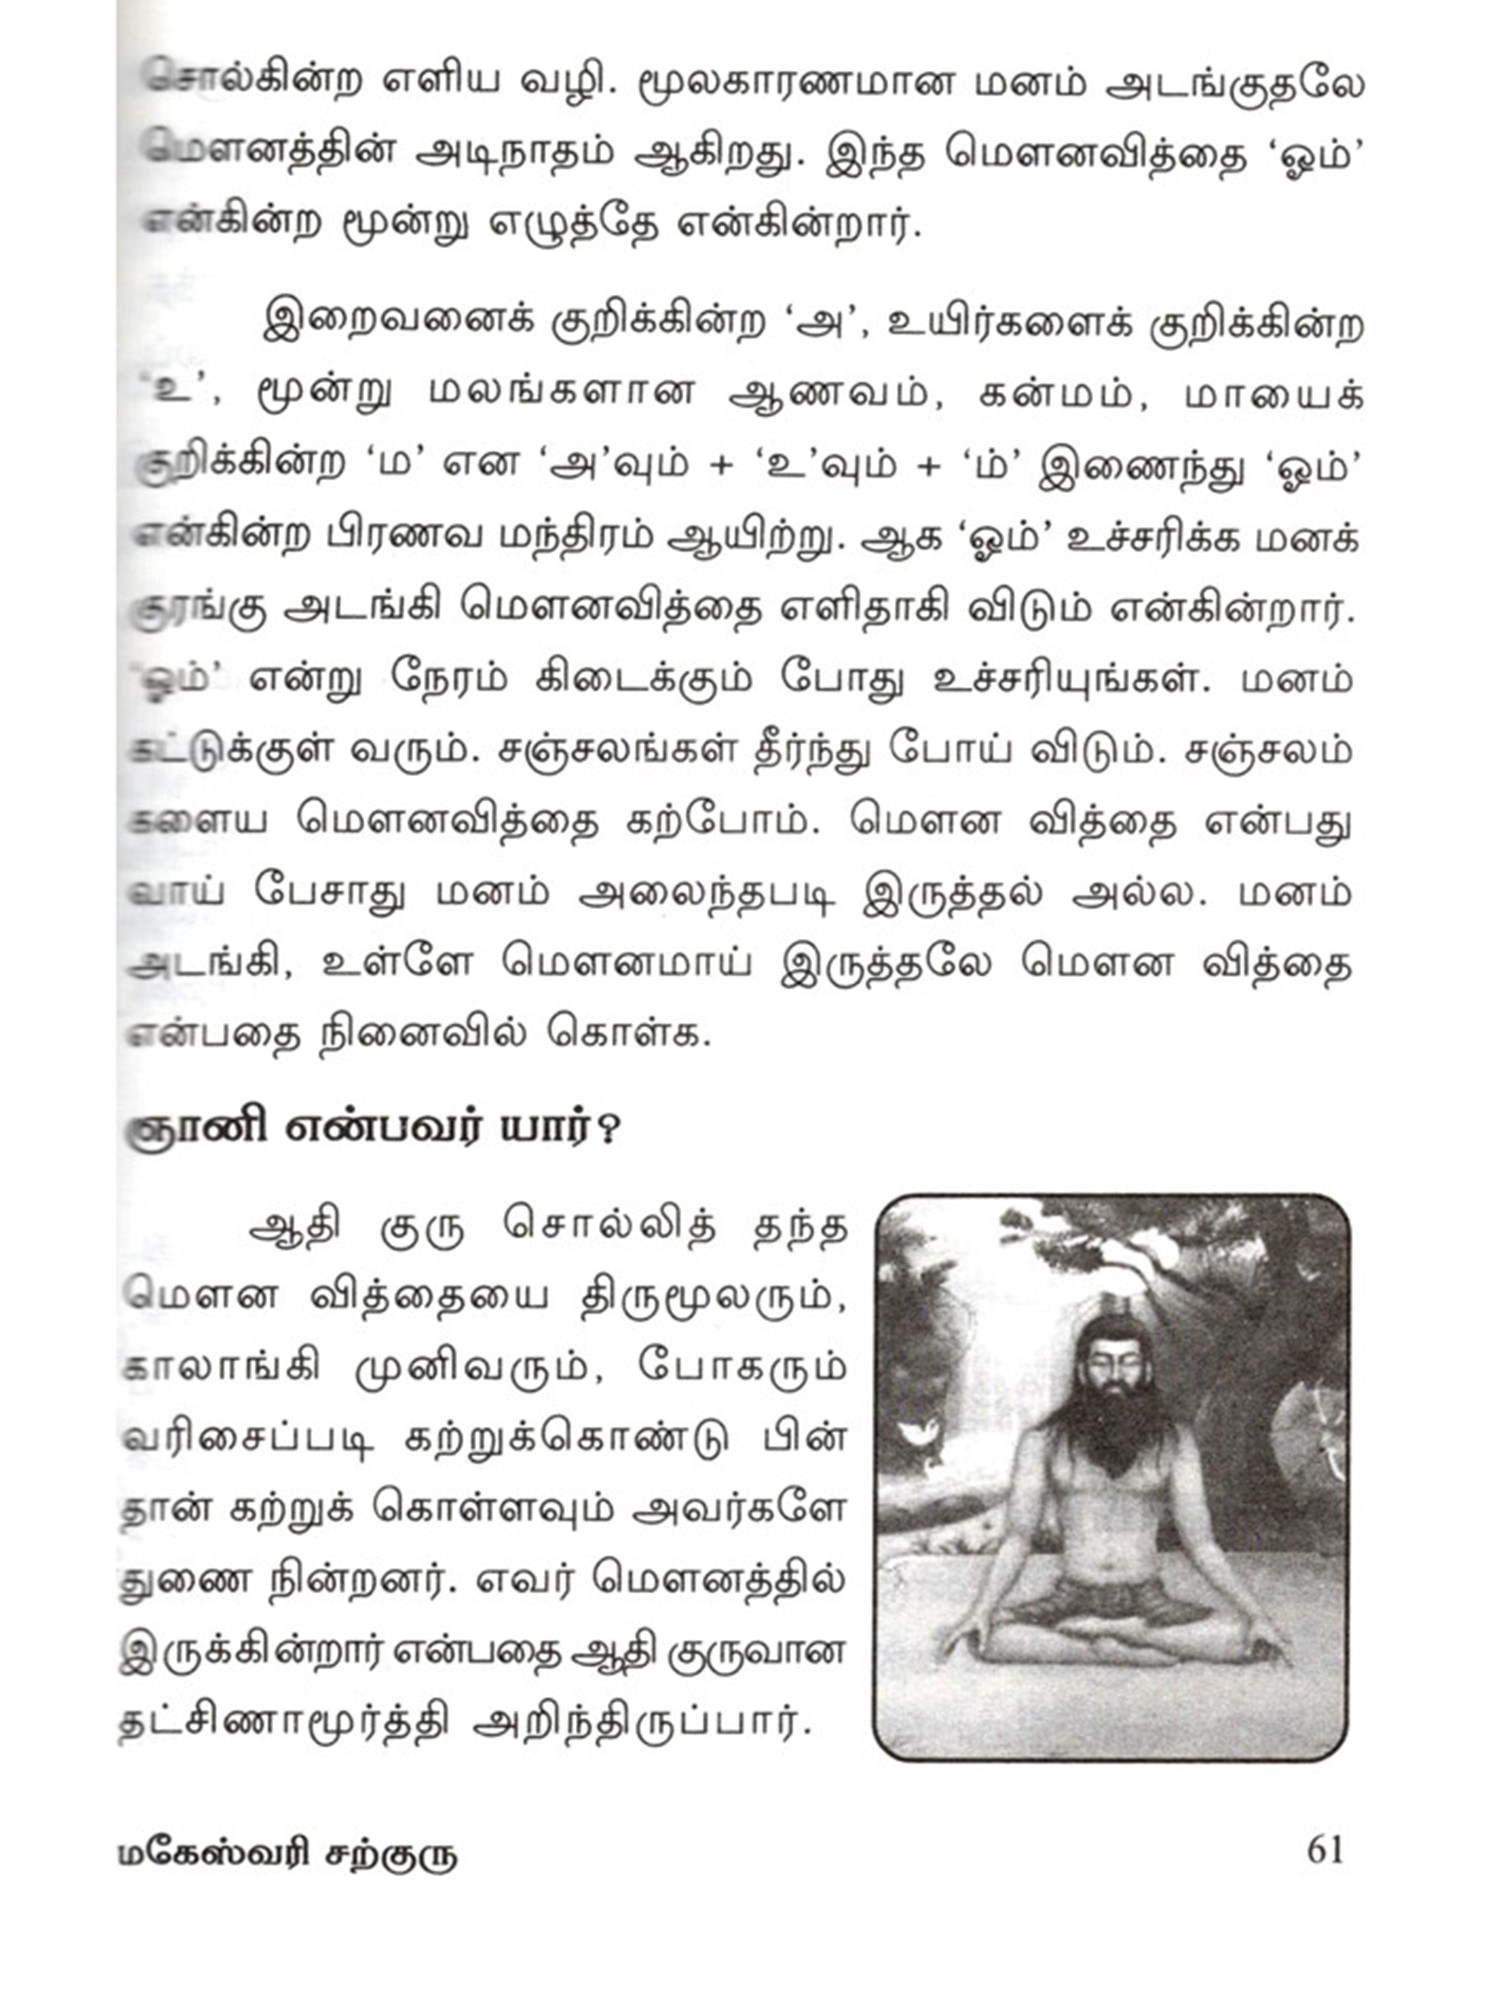 சொல்கின்ற எளிய வழி. மூலகாரணமான மனம் அடங்குதலே
மௌனத்தின் அடிநாதம் ஆகிறது. இந்த மௌனவித்தை ‘ஓம்’
என்கின்ற மூன்று எழுத்தே என்கின்றார்.
இறைவனைக் குறிக்கின்ற ‘அ’, உயிர்களைக் குறிக்கின்ற
‘உ’, மூன்று மலங்களான ஆணவம், கன்மம், மாயைக்
குறிக்கின்ற ‘ம’ என ‘அ’வும் + ‘உ’வும் + ‘ம்’ இணைந்து ‘ஓம்’
என்கின்ற பிரணவ மந்திரம் ஆயிற்று. ஆக ‘ஓம்’ உச்சரிக்க மனக்
குரங்கு அடங்கி மௌனவித்தை எளிதாகி விடும் என்கின்றார்.
‘ஓம்’ என்று நேரம் கிடைக்கும் போது உச்சரியுங்கள். மனம்
கட்டுக்குள் வரும். சஞ்சலங்கள் தீர்ந்து போய் விடும். சஞ்சலம்
களைய மௌனவித்தை கற்போம். மௌன வித்தை என்பது
வாய் பேசாது மனம் அலைந்தபடி இருத்தல் அல்ல. மனம்
அடங்கி, உள்ளே மௌனமாய் இருத்தலே மௌன வித்தை
என்பதை நினைவில் கொள்க.
ஞானி என்பவர் யார்?
ஆதி குரு சொல்லித் தந்த
மௌன வித்தையை திருமூலரும்,
காலாங்கி முனிவரும், போகரும்
வரிசைப்படி கற்றுக்கொண்டு பின்
தான் கற்றுக் கொள்ளவும் அவர்களே
துணை நின்றனர். எவர் மௌனத்தில்
இருக்கின்றார் என்பதை ஆதி குருவான
தட்சிணாமூர்த்தி அறிந்திருப்பார்.
மகேஸ்வரி சற்குரு
61